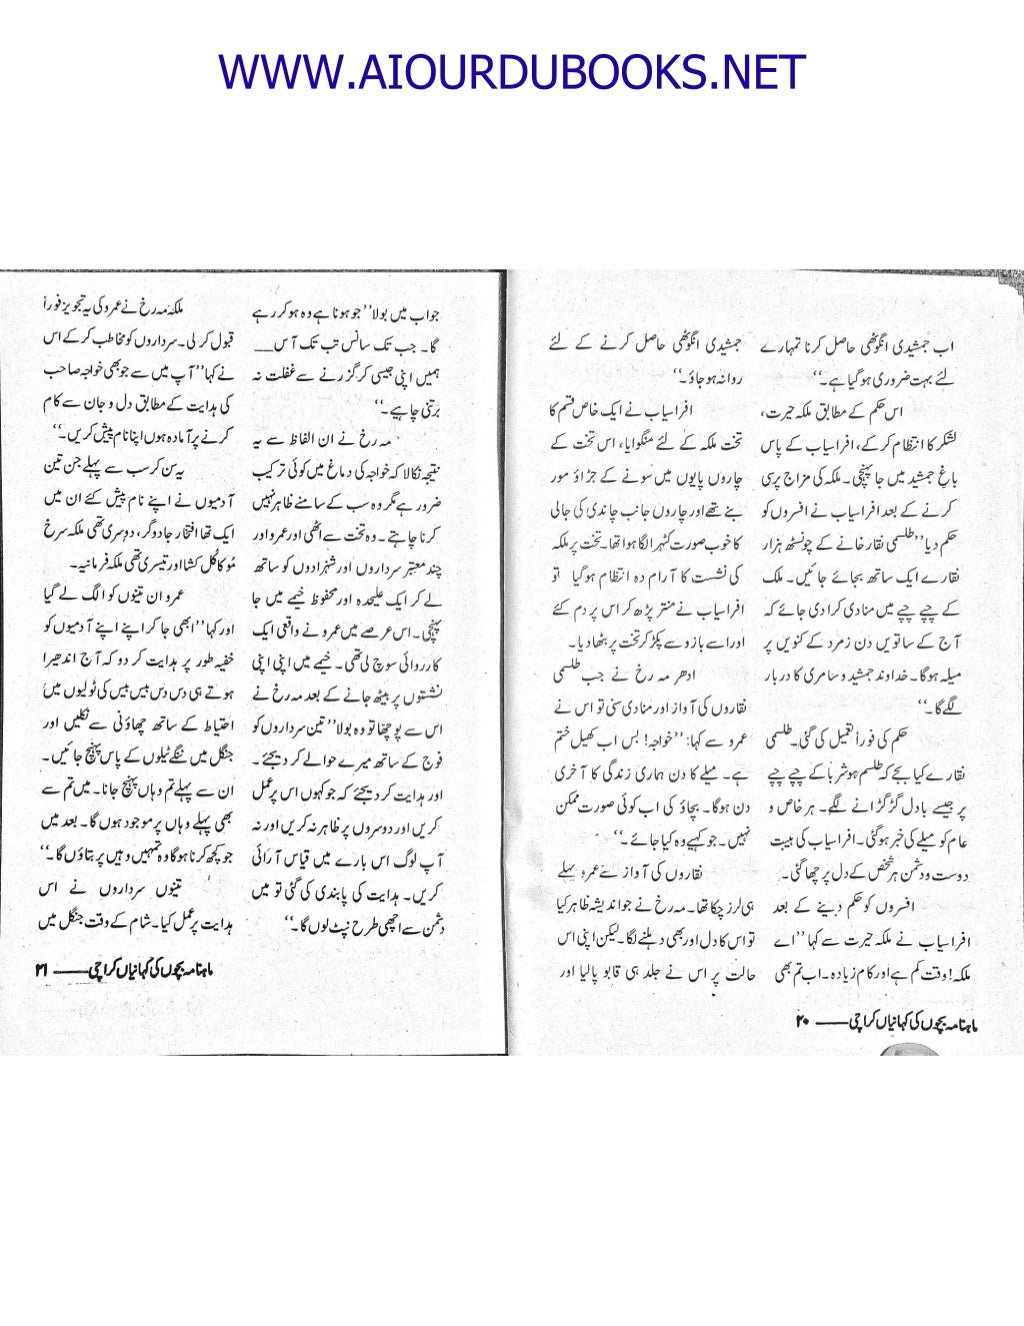 WWW.AIOURDUBOOKS.NET
اب جمشیدی انگوٹھی حاصل کرنا تمہارے
لئے بہت ضروری ہو گیا ہے۔‘‘
اس حکم کے مطابق ملکہ حیرت،
لشکر کا انتظام کر کے، افراسیاب کے پاس
باغِ جمشید میں جا پہنچی۔ ملکہ کی مزاج پرسی
کرنے کے بعد افراسیاب نے افسروں کو
حکم دیا ’’طلسمی نقار خانے کے چونسٹھ ہزار
نقارے ایک ساتھ بجائے جائیں۔ ملک
کے چپے چپے میں منادی کرا دی جائے کہ
آج کے ساتویں دن زمرد کے کنویں پر
میلہ ہوگا۔ خداوند جمشید و سامری کا دربار
لگے گا۔‘‘
حکم کی فوراً تعمیل کی گئی۔ طلسمی
نقارے کیا بجے کہ طلسم ہوشربا کے چپے چپے
پر جیسے بادل گڑگڑانے لگے۔ ہر خاص و
عام کو میلے کی خبر ہو گئی۔ افراسیاب کی ہیبت
دوست و دشمن ہر شخص کے دل پر چھا گئی۔
افسروں کو حکم دینے کے بعد
افراسیاب نے ملکہ حیرت سے کہا ’’اے
ملکہ! وقت کم ہے اور کام زیادہ۔ اب تم بھی
جمشیدی انگوٹھی حاصل کرنے کے لئے
روانہ ہو جاؤ۔‘‘
افراسیاب نے ایک خاص قسم کا
تخت ملکہ کے لئے منگوایا، اس تخت کے
چاروں پایوں میں سونے کے جڑاؤ مور
بنے تھے اور چاروں جانب چاندی کی جالی
کا خوب صورت کٹہرا لگا ہوا تھا۔ تخت پر ملکہ
کی نشست کا آرام دہ انتظام ہو گیا تو
افراسیاب نے منتر پڑھ کر اس پر دم کئے
اور اسے بازو سے پکڑ کر تخت پر بٹھا دیا۔
ادھر مہ رخ نے جب طلسمی
نقاروں کی آواز اور منادی سنی تو اس نے
عمرو سے کہا: ’’خواجہ! بس اب کھیل ختم
ہے۔ میلے کا دن ہماری زندگی کا آخری
دن ہوگا۔ بچاؤ کی اب کوئی صورت ممکن
نہیں۔ جو کہیے وہ کیا جائے۔‘‘
نقاروں کی آواز سے عمرو پہلے
ہی لرز چکا تھا۔ مہ رخ نے جو اندیشہ ظاہر کیا
تو اس کا دل اور بھی دہلنے لگا۔ لیکن اپنی اس
حالت پر اس نے جلد ہی قابو پا لیا اور
ماہنامہ بچوں کی کہانیاں کراچی —— ۲۰
جواب میں بولا ’’جو ہونا ہے وہ ہو کر رہے
گا۔ جب تک سانس تب تک آس __
ہمیں اپنی جیسی کر گزرنے سے غفلت نہ
برتنی چاہیے۔‘‘
مہ رخ نے ان الفاظ سے یہ
نتیجہ نکالا کہ خواجہ کی دماغ میں کوئی ترکیب
ضرور ہے مگر وہ سب کے سامنے ظاہر نہیں
کرنا چاہتے۔ وہ تخت سے اٹھی اور عمرو اور
چند معتبر سرداروں اور شہزادوں کو ساتھ
لے کر ایک علیحدہ اور محفوظ خیمے میں جا
پہنچی۔ اس عرصے میں عمرو نے واقعی ایک
کارروائی سوچ لی تھی۔ خیمے میں اپنی اپنی
نشستوں پر بیٹھ جانے کے بعد مہ رخ نے
اس سے پوچھا تو وہ بولا ’’تین سرداروں کو
فوج کے ساتھ میرے حوالے کر دیجئے۔
اور ہدایت کر دیجئے کہ جو کہوں اس پر عمل
کریں اور دوسروں پر ظاہر نہ کریں اور نہ
آپ لوگ اس بارے میں قیاس آرائی
کریں۔ ہدایت کی پابندی کی گئی تو میں
دشمن سے اچھی طرح نپٹ لوں گا۔‘‘
ملکہ مہ رخ نے عمرو کی یہ تجویز فوراً
قبول کر لی۔ سرداروں کو مخاطب کر کے اس
نے کہا ’’آپ میں سے جو بھی خواجہ صاحب
کی ہدایت کے مطابق دل و جان سے کام
کرنے پر آمادہ ہوں اپنا نام پیش کریں۔‘‘
یہ سن کر سب سے پہلے جن تین
آدمیوں نے اپنے نام پیش کئے ان میں
ایک تھا افتخار جادوگر، دوسری تھی ملکہ سرخ
مُو کاکُل کشا اور تیسری تھی ملکہ فرمانیہ۔
عمرو ان تینوں کو الگ لے گیا
اور کہا ’’ابھی جا کر اپنے اپنے آدمیوں کو
خفیہ طور پر ہدایت کر دو کہ آج اندھیرا
ہوتے ہی دس دس بیس بیس کی ٹولیوں میں
احتیاط کے ساتھ چھاؤنی سے نکلیں اور
جنگل میں ننگے ٹیلوں کے پاس پہنچ جائیں۔
ان سے پہلے تم وہاں پہنچ جانا۔ میں تم سے
بھی پہلے وہاں پر موجود ہوں گا۔ بعد میں
جو کچھ کرنا ہوگا وہ تمہیں وہیں پر بتاؤں گا۔‘‘
تینوں سرداروں نے اس
ہدایت پر عمل کیا۔ شام کے وقت جنگل میں
ماہنامہ بچوں کی کہانیاں کراچی —— ۲۱